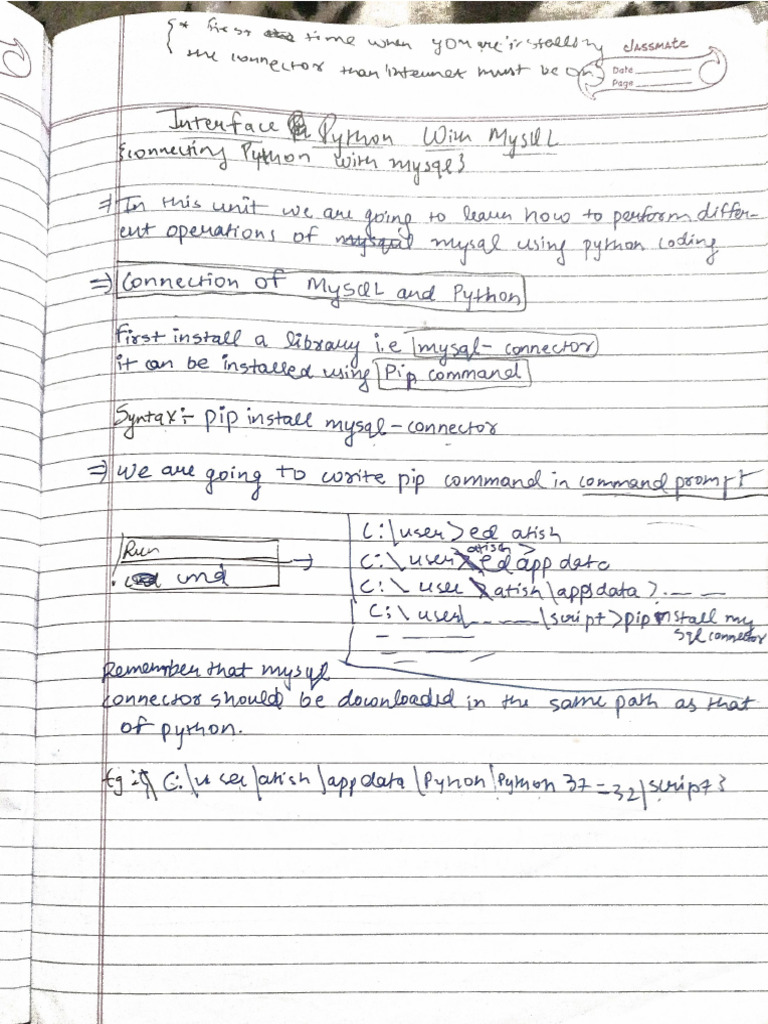 {* first time when you are installing
the connector than internet must be on}
classmate
Date
Page
Interface Python With MySQL
{connecting Python with mysql}
⇒ In this unit we are going to learn how to perform differ-
ent operations of mysql using python coding
⇒ Connection of MySQL and Python
first install a library i.e mysql-connector
it can be installed using Pip command
Syntax:- pip install mysql-connector
⇒ We are going to write pip command in command prompt
Run
cmd
→
C:\user>cd atish
C:\user\atish>cd app data
C:\user\atish\appdata>.— —
C:\user\_ _ _ _\script>pip install my
sql connector
Remember that mysql
connector should be downloaded in the same path as that
of python.
Eg:- { C:\user\atish\appdata\Pyhon\Python 37=32\script}